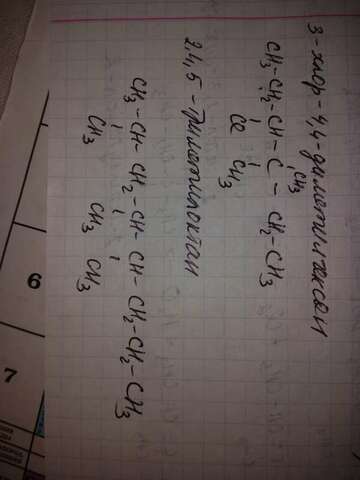 3-хлор-4,4-диметилгексан
CH3
CH3-CH2-CH-C-CH2-CH3
Cl CH3
2,4,5-триметилоктан
CH3-CH-CH2-CH-CH-CH2-CH2-CH3
CH3 CH3 CH3
6
7